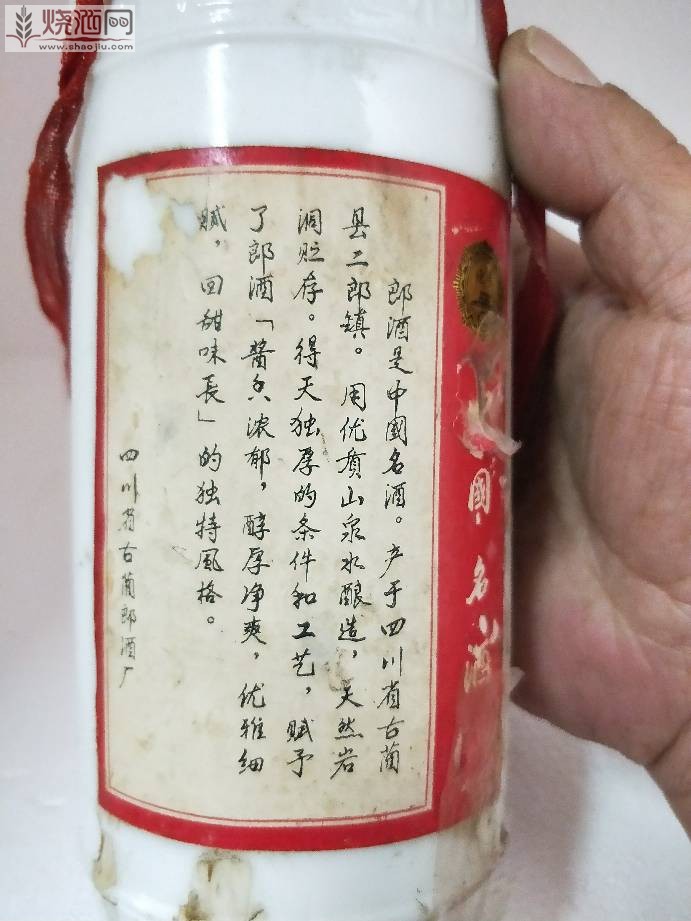 烧酒网
www.shaojiu.com
國名酒
郎酒是中國名酒。产于四川省古蔺
县二郎镇。用优质山泉水酿造，天然岩
洞贮存。得天独厚的条件和工艺，赋予
了郎酒「酱香浓郁，醇厚净爽，优雅细
腻，回甜味長」的独特風格。
四川省古蔺郎酒厂